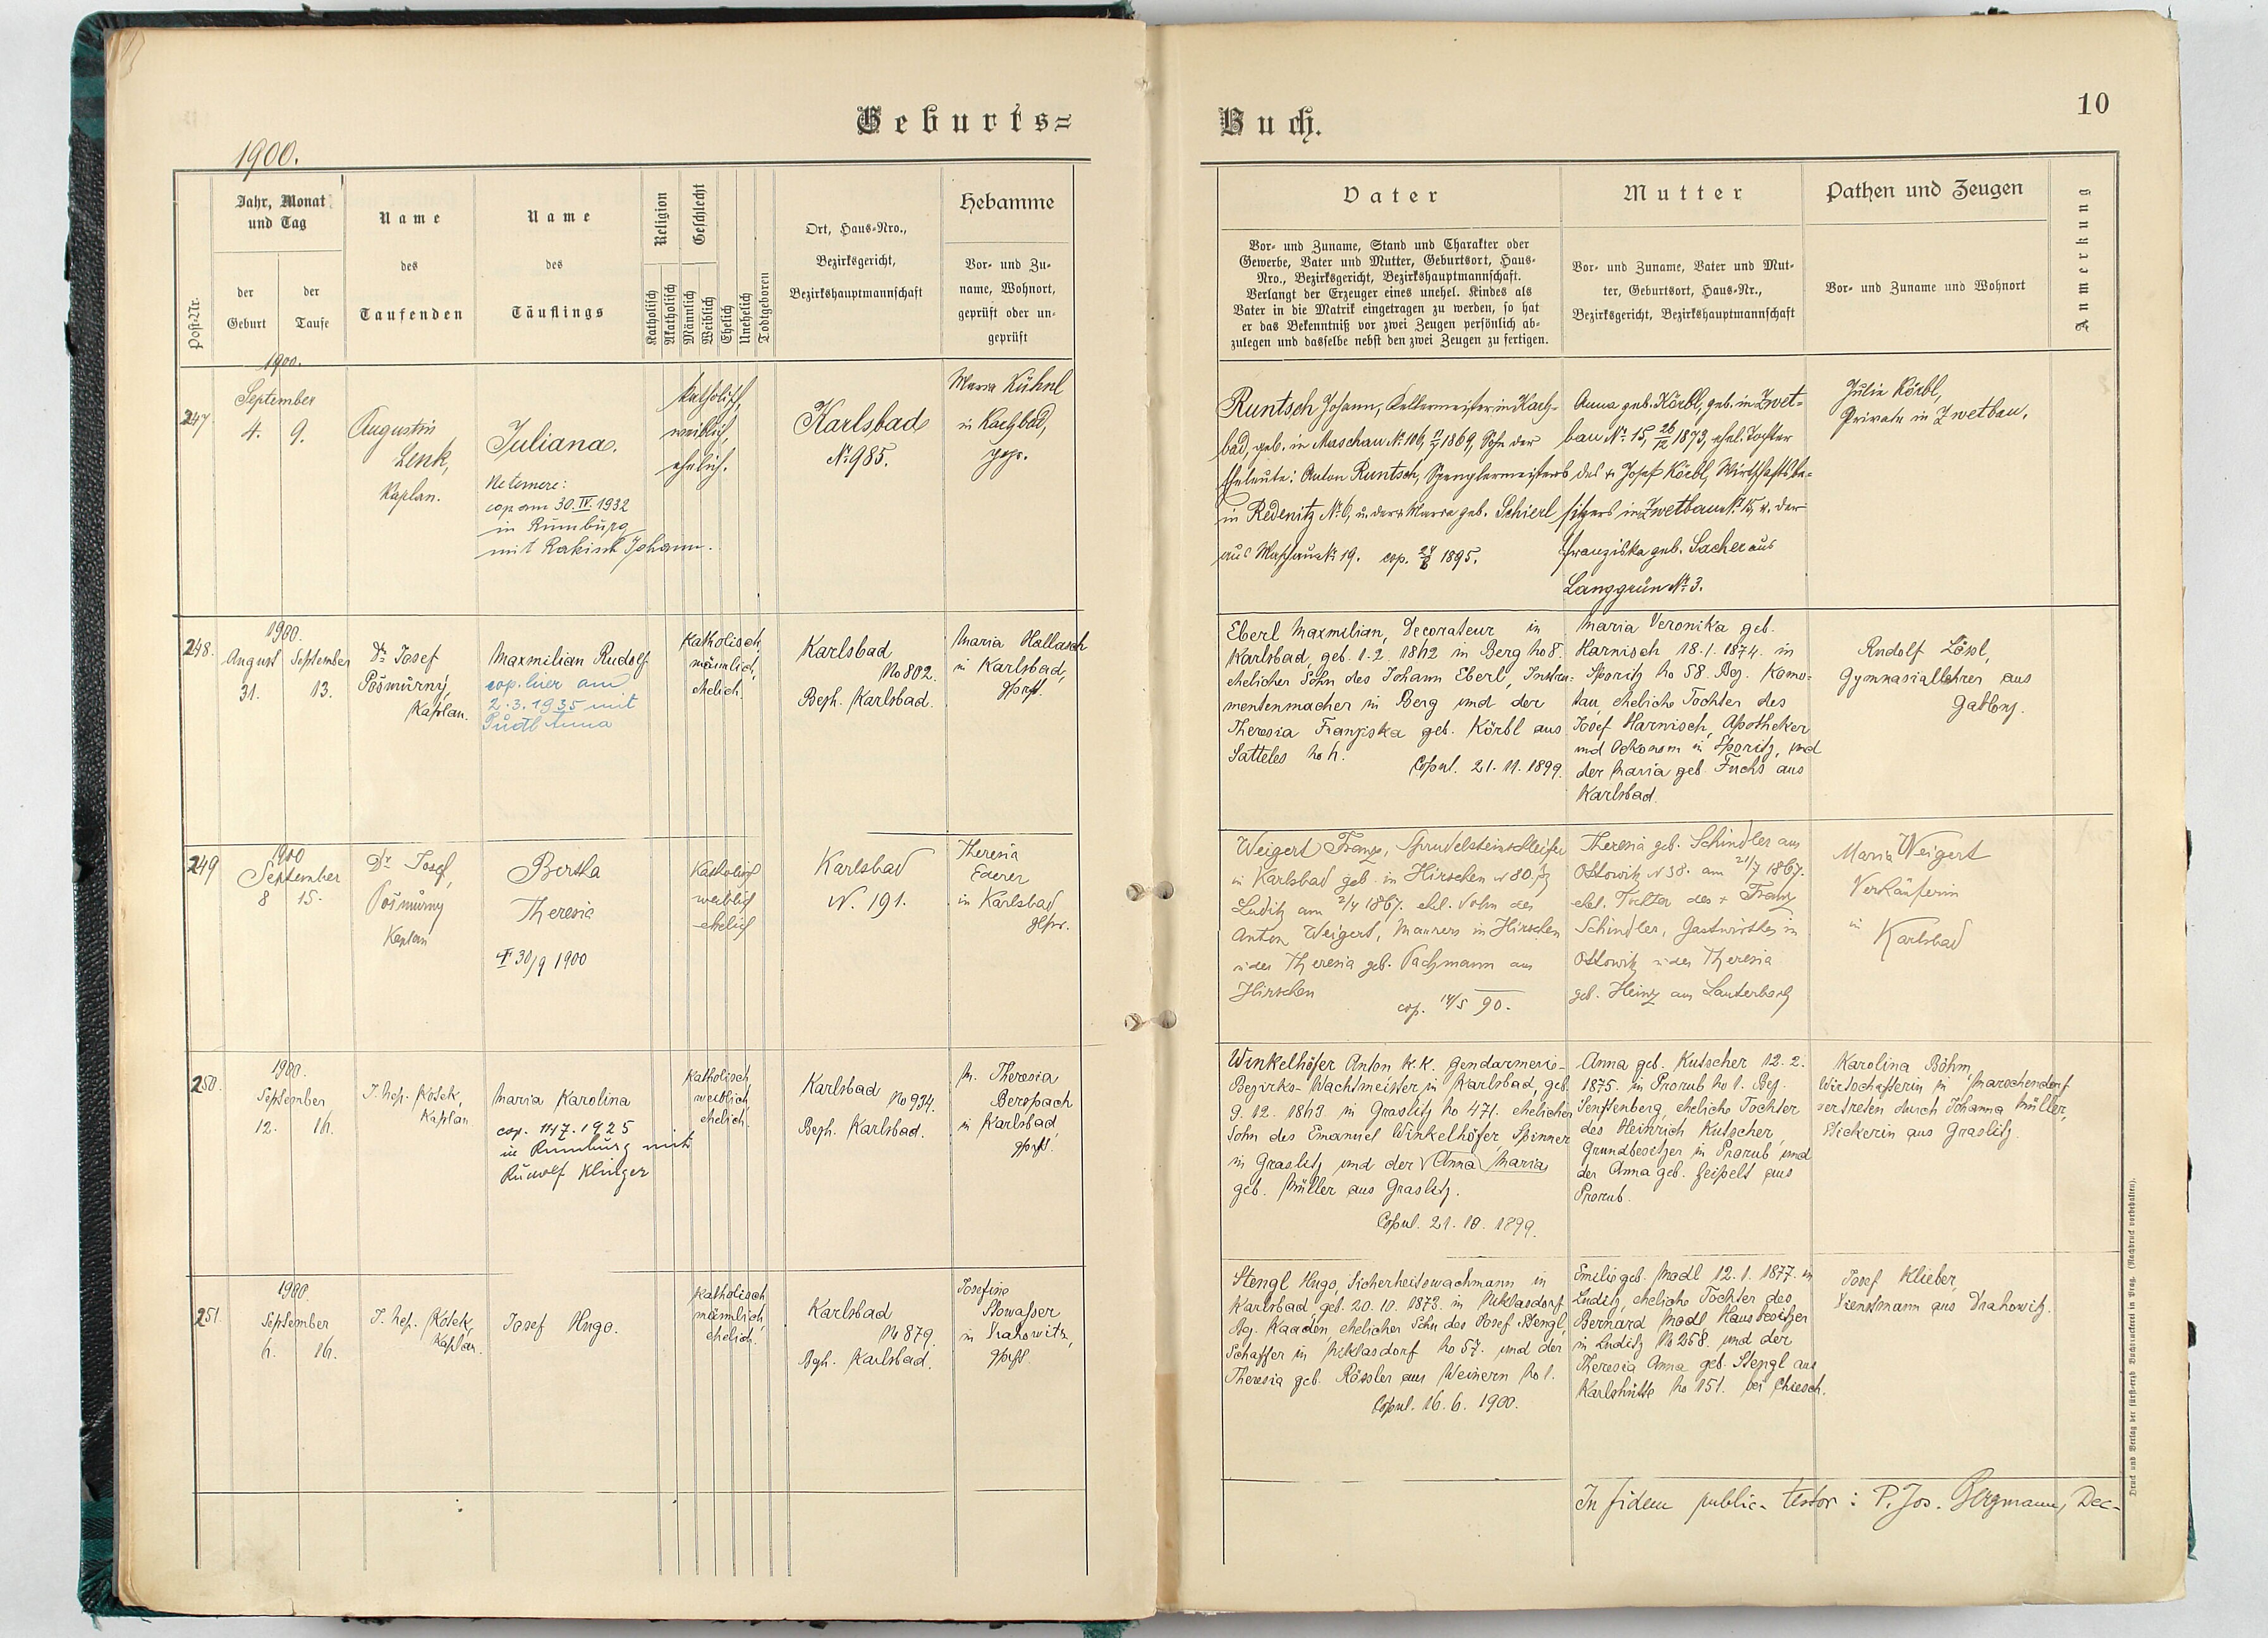 Geburts=
1900.
Post-Nr.
Jahr, Monat
und Tag
der
Geburt
der
Taufe
Name
des
Taufenden
Name
des
Täuflings
Religion
Katholisch
Akatholisch
Geschlecht
Männlich
Weiblich
Ehelich
Unehelich
Todtgeboren
Ort, Haus-Nro.,
Bezirksgericht,
Bezirkshauptmannschaft
Hebamme
Vor- und Zu-
name, Wohnort,
geprüft oder un-
geprüft
247.
1900.
September
4. 9.
Augustin
Lenk,
Kaplan.
Juliana.
Ne temere:
cop am 30.IV.1932
in Rumburg
mit Rakisch Johann.
katholisch,
weiblich,
ehelich.
Karlsbad
No 985.
Maria Kühnl
in Karlsbad,
gepr.
248.
1900.
August September
31. 13.
Dr Josef
Pošmůrný,
Kaplan.
Maxmilian Rudolf
cop. hier am
2.3.1935 mit
Pudl Anna
Katholisch,
männlich,
ehelich.
Karlsbad
No 802.
Bezh. Karlsbad.
Maria Hallasch
in Karlsbad,
gprft.
249
1900
September
8 15.
Dr Josef,
Pošmůrný
Kaplan
Bertha
Theresia
† 30/9 1900
Katholisch
weiblich
ehelich
Karlsbad
N. 191.
Theresia
Ederer
in Karlsbad
gepr.
250.
1900.
September
12. 16.
J. Nep. Kosek,
Kaplan
Maria Karolina
cop. 11/7.1925
in Rumburg mit
Rudolf Klinger
Katholisch
weiblich
ehelich.
Karlsbad
No 934.
Bezh. Karlsbad.
M. Theresia
Berspach
in Karlsbad,
gprft.
251.
1900.
September
6. 16.
J. Nep. Kosek,
Kaplan.
Josef Hugo.
Katholisch
männlich,
ehelich.
Karlsbad
No 879.
Bzh. Karlsbad.
Josefine
Stowasser
in Drahowitz,
gprft.
Buch.
10
Vater
Vor- und Zuname, Stand und Charakter oder
Gewerbe, Vater und Mutter, Geburtsort, Haus-
Nro., Bezirksgericht, Bezirkshauptmannschaft.
Verlangt der Erzeuger eines unehel. Kindes als
Vater in die Matrik eingetragen zu werden, so hat
er das Bekenntniß vor zwei Zeugen persönlich ab-
zulegen und dasselbe nebst den zwei Zeugen zu fertigen.
Mutter
Vor- und Zuname, Vater und Mut-
ter, Geburtsort, Haus-Nr.,
Bezirksgericht, Bezirkshauptmannschaft
Pathen und Zeugen
Vor- und Zuname und Wohnort
Anmerkung
Runtsch Johann, Kellermeister in Karls-
bad, geb. in Maschau No 106, 1869, Sohn der
Eheleute: Anton Runtsch, Spenglermeisters
in Redenitz No 6, u. der + Maria geb. Schierl
aus Maschau No 19. cop. 24/6 1895.
Anna geb. Körbl, geb. in Zwet-
bau No 15, 26/12 1873, ehel. Tochter
des + Josef Körbl, Wirthschaftsbe-
sitzers in Zwetbau No 15, u. der
Franziska geb. Sacher aus
Langgrün No 3.
Julie Körbl,
Private in Zwetbau.
Eberl Maxmilian, Decorateur in
Karlsbad, geb. 1.2. 1862 in Berg No 8.
ehelicher Sohn des Johann Eberl, Instru-
mentenmacher in Berg und der
Theresia Franziska geb. Körbl aus
Satteles No 4.
Copul. 21.11.1899.
Maria Veronika geb.
Harnisch 18.1.1874. in
Sporitz No 58. Bez. Komo-
tau, eheliche Tochter des
Josef Harnisch, Apotheker
und Oekonom in Sporitz, und
der Maria geb. Fuchs aus
Karlsbad.
Rudolf Lössl,
Gymnasiallehrer aus
Gablonz.
Weigert Franz, Sprudelsteinschleifer
in Karlsbad geb. in Hirschen N 80. Bz
Luditz am 2/4 1867. ehel. Sohn des
Anton Weigert, Maurers in Hirschen
u. der Theresia geb. Pachmann aus
Hirschen
cop. 14/5 90.
Theresia geb. Schindler aus
Ottowitz N 38. am 21/7 1867.
ehel. Tochter des + Franz
Schindler, Gastwirthes in
Ottowitz u. der Theresia
geb. Heinz aus Lauterbach
Maria Weigert
Verkäuferin
in
Karlsbad
Winkelhöfer Anton k.k. Gendarmerie-
Bezirks-Wachtmeister in Karlsbad, geb.
9.12. 1863 in Graslitz No 471. ehelicher
Sohn des Emanuel Winkelhöfer, Spinner
in Graslitz und der Anna Maria
geb. Müller aus Graslitz.
Copul. 21.10.1899.
Anna geb. Kutscher 12.2.
1875. in Prorub No 1. Bez.
Senftenberg, eheliche Tochter
des Heinrich Kutscher,
Grundbesitzer in Prorub und
der Anna geb. Zeipelt aus
Prorub.
Karolina Böhm,
Wirtschafterin in Marschendorf
vertreten durch Johanna Müller,
Stickerin aus Graslitz.
Stengl Hugo, Sicherheitswachmann in
Karlsbad, geb. 20.10.1873. in Niklasdorf
Bez. Kaaden, ehelicher Sohn des Josef Stengl,
Schaffer in Niklasdorf No 57. und der
Theresia geb. Rössler aus Weinern No 1.
Copul. 16.6.1900.
Emilie geb. Modl 12.1.1877. in
Luditz, eheliche Tochter des
Bernard Modl Hausbesitzer
in Luditz No 258. und der
Theresia Anna geb. Stengl aus
Karlshütte No 151. bei Chiesch.
Josef Klieber,
Dienstmann aus Drahowitz.
In fidem public. testor: P. Jos. Bergmann, Dec-
Druck und Verlag der fürst-erzb. Buchdruckerei in Prag. (Nachdruck vorbehalten).